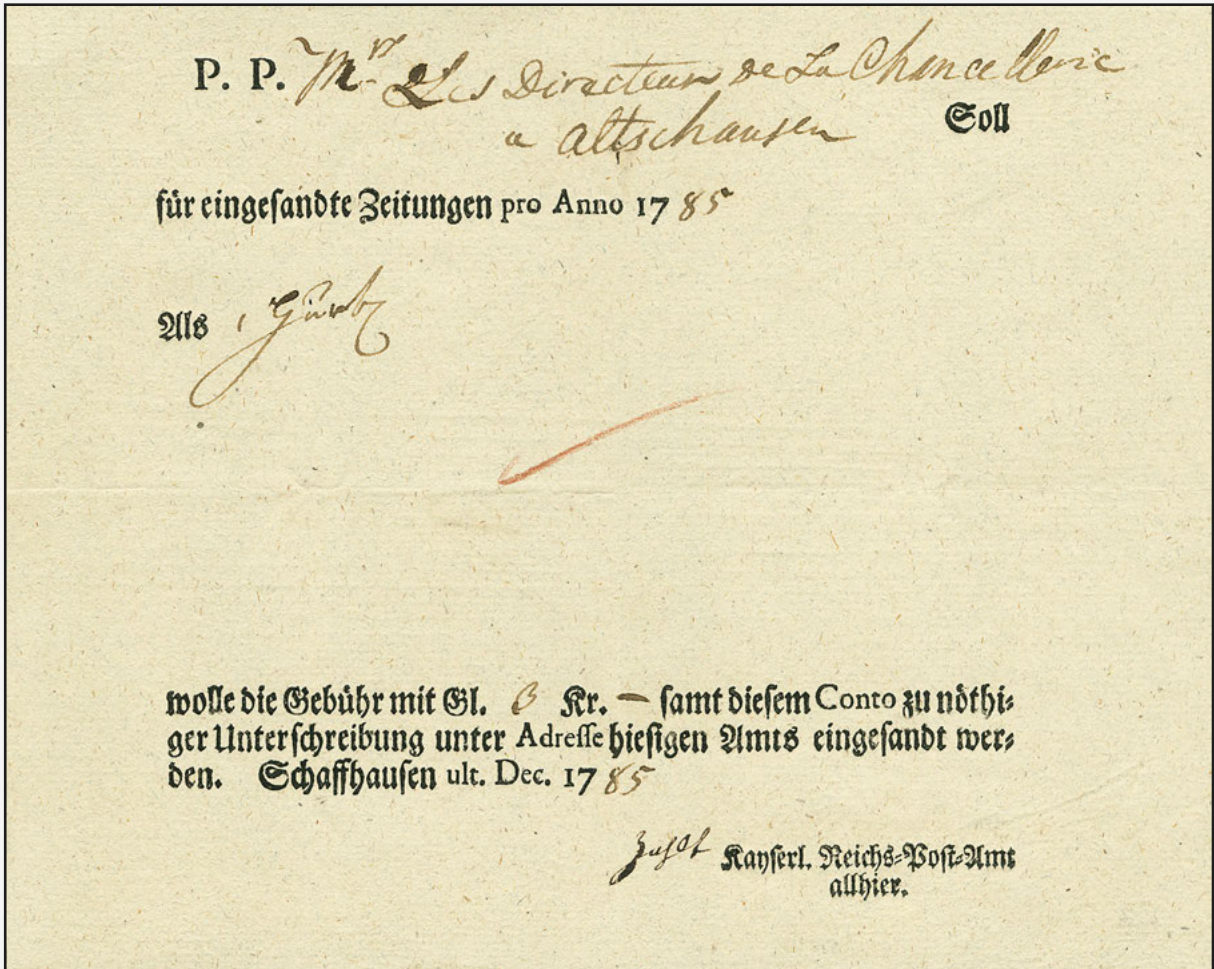 P. P. Mrs Les Directeur de La Chancellerie
a altschausen Soll
für eingesandte Zeitungen pro Anno 1785
Als 1
wolle die Gebühr mit Gl. 3 Kr. – samt diesem Conto zu nöthi-
ger Unterschreibung unter Adresse hiesigen Amts eingesandt wer-
den. Schaffhausen ult. Dec. 1785
zahlt Kayserl. Reichs-Post-Amt
allhier.